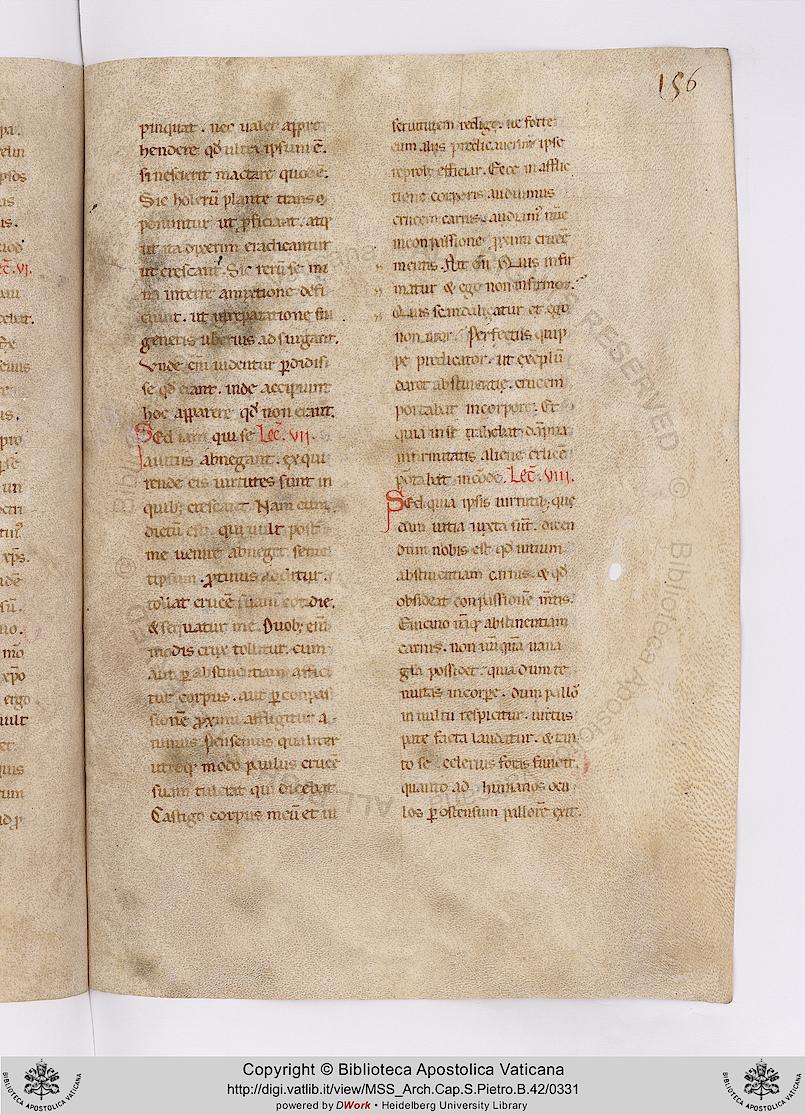 156
pinquat. nec ualet appre
hendere qđ ultra ipsum ē.
si nescierit mactare quod ē.
Sic holerū plante transp
ponuntur ut ꝓficiant. atq
ut ita dixerim eradicantur
ut crescant. Sic rerū se mi
na in terre amixtione defi
ciunt. ut in reparatione sui
generis uberius adsurgant.
Vnde eīm uidentur ꝑdidis
se qđ erant. inde accipiunt
hoc apparere qđ non erant.
Sed iam qui se Lec̄. vii.
a uitiis abnegant. exqui
rende eis uirtutes sunt in
quib; crescant. Nam cum
dictū est. qui uult post
me uenire abneget seme
tipsum. ꝓtinus additur.
tollat crucē suam cotidie.
& sequatur me. Duob; eīm
modis crux tollitur. cum
aut ꝑ abstinentiam affici
tur corpus. aut ꝑ conpas
sionē ꝓximi affligitur a
nimus. Pensemus qualiter
utroq; modo paulus crucē
suam tulerat qui dicebat.
Castigo corpus meū et in
seruitutem redigo. ne forte
cum aliis predicauerim ipse
reprob; efficiar. Ecce in afflic
tione corporis audiuimus
crucem carnis. audiam' nūc
in conpassione ꝓximi crucē
mentis. Ait eīm Quis infir
matur & ego non infirmor.
Quis scandaligatur et ego
non uror. Perfectus quip
pe predicator. ut exēplū
daret abstinentiae. crucem
portabat in corpore. Et
quia in se trahebat dāpna
infirmitatis aliene crucē
portabat in corde. Lec̄. viii.
Sed quia ipsis uirtutib; que
dam uitia iuxta sūt. dicen
dum nobis est qđ uitium
abstinentiam carnis. & qđ
obsideat conpassionē mētis.
E uicino nāq; abstinentiam
carnis. non nūquā uana
gła possidet. quia dum te
nuitas in corpe. dum pallor
in uultu respicitur. uirtus
pate facta laudatur. & tan
to se celerius foras fundit.
quanto ad humanos ocu
los ꝑ ostensum pallorē exit.
Copyright © Biblioteca Apostolica Vaticana
http://digi.vatlib.it/view/MSS_Arch.Cap.S.Pietro.B.42/0331
powered by DWork • Heidelberg University Library